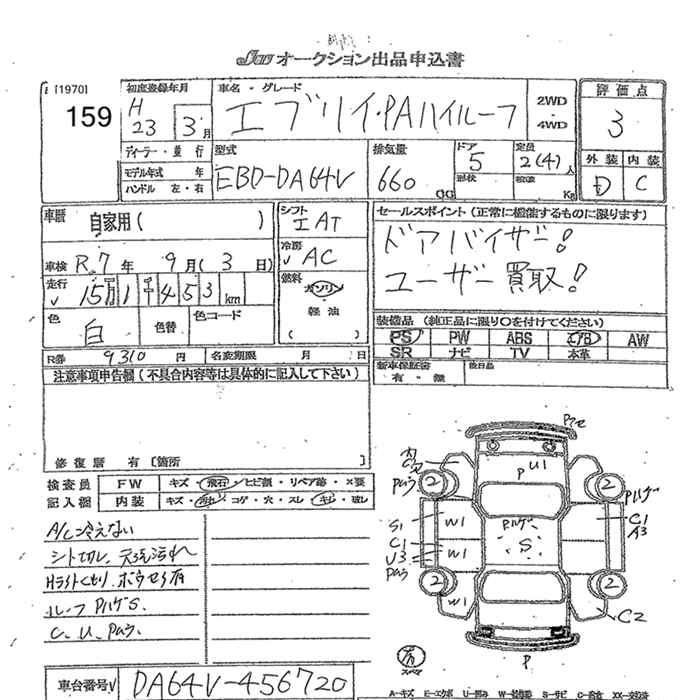 オークション出品申込書
[1970]
159
初度登録年月
H 23 3月
車名・グレード
エブリイ・PAハイルーフ
2WD
4WD
評価点
3
外装 内装
D C
ディーラー・並行
モデル年式 年
ハンドル 左・右
型式
EBD-DA64V
排気量
660 CC
ドア
5
形状
定員
2(4)人
積載
Kg
車歴
自家用( )
シフト
エAT
冷房
AC
車検 R.7年 9月(3日)
走行
15万1千453km
燃料
ガソリン
軽油
( )
色
白
色替
色コード
R券 9,310円
名変期限 月 日
セールスポイント(正常に機能するものに限ります)
ドアバイザー!
ユーザー買取!
装備品(純正品に限り○を付けてください)
PS PW ABS エアB AW
SR ナビ TV 本革
新車保証書
有・無
後日品
注意事項申告欄(不具合内容等は具体的に記入して下さい)
修復歴 有〔箇所 〕
検査員
記入欄
FW キズ・飛石・ヒビ割・リペア跡・×要
内装 キズ・汚れ・コゲ・穴・スレ・キレ・破れ
A/C冷えない
シート切れ、天張汚れ
Hライトくもり、ボウセイ有
ルーフPハゲS.
C、U、Pムラ.
車台番号 DA64V-456720
Pフセ
U1
P
2
2
Pムラ
Pハゲ
S1
W1
Pハゲ
C1
A3
C1
W1
S
U3
Pムラ
2
2
W1
C2
P
スペア
A-キズ E-エクボ U-凹み W-補修跡 S-サビ C-腐食 XX-交換済